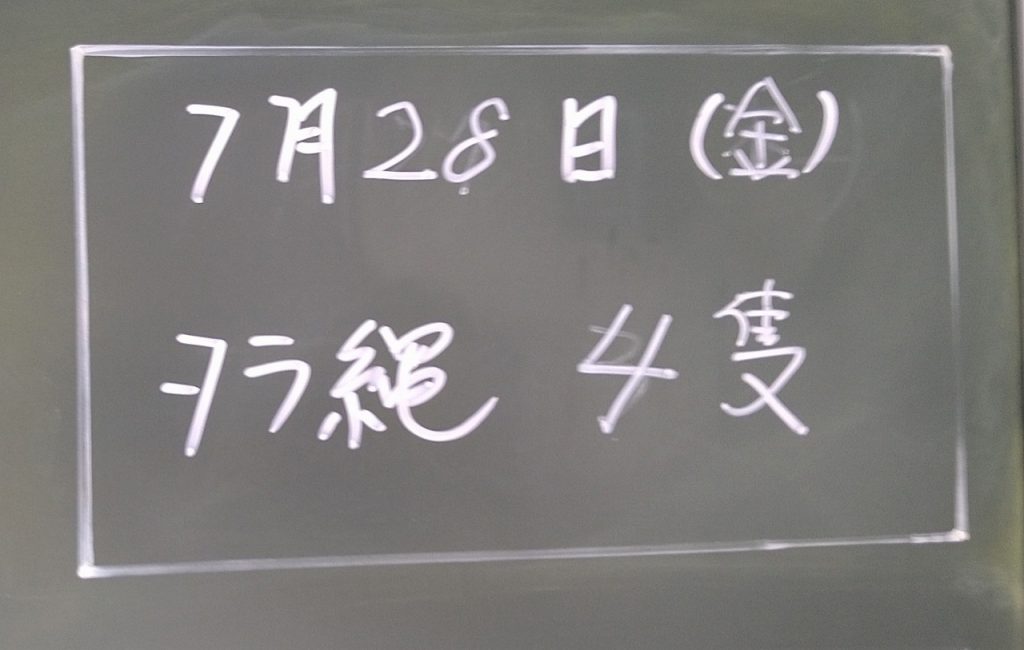 7月28日(金)
タラ縄 4隻